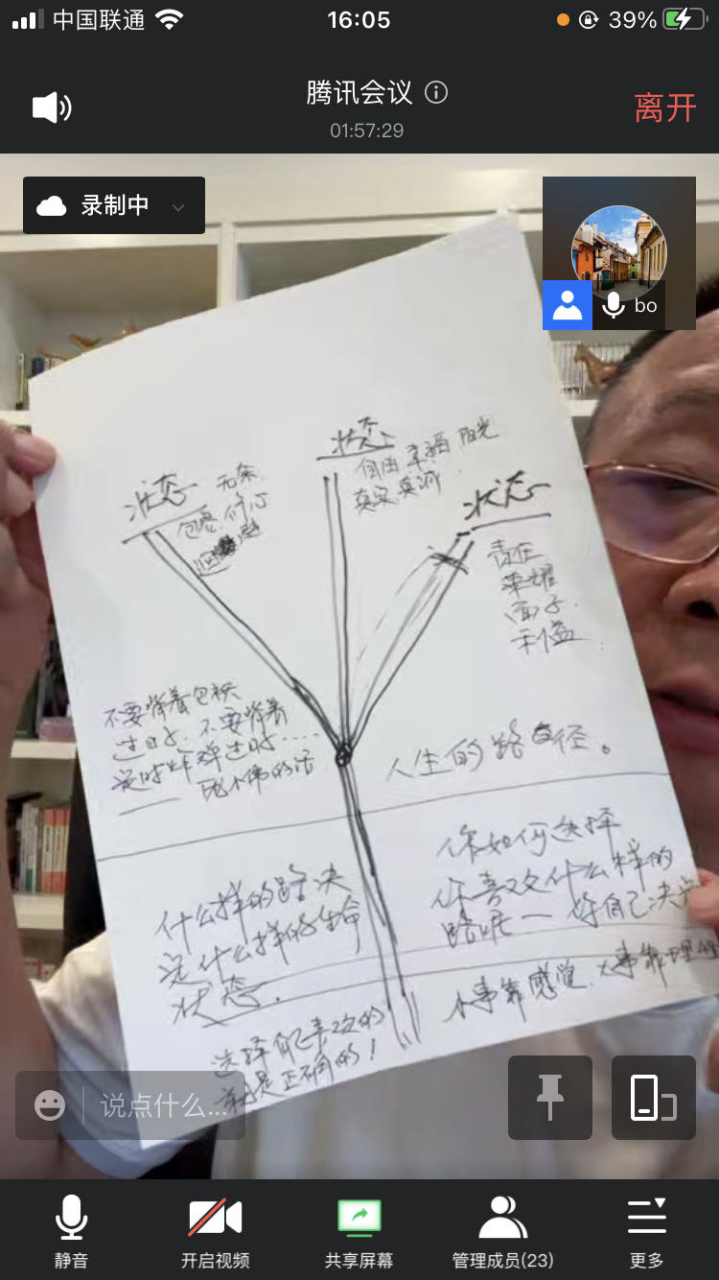 中国联通
16:05
39%
腾讯会议
01:57:29
离开
录制中
bo
状态
自由 幸福 阳光
真实 真诚
状态
无条
状态
责任
荣耀
面子
利益
不要背着包袱
过日子. 不要背着
定时炸弹过日子……
人生的路径。
什么样的路决
定什么样的生命
状态.
你如何选择
你喜欢什么样的
路呢— 你自己决定
小事靠感觉. 大事靠理
选择自己喜欢的
就是正确的!
说点什么...
静音
开启视频
共享屏幕
管理成员(23)
更多